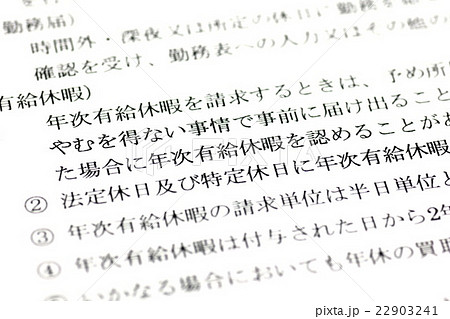 を行
勤務届)
時間外・深夜又は所定の休日に勤務を
確認を受け、勤務表への入力又はその他の
有給休暇)
年次有給休暇を請求するときは、予め所
やむを得ない事情で事前に届け出ること
た場合に年次有給休暇を認めることがあ
② 法定休日及び特定休日に年次有給休暇
③ 年次有給休暇の請求単位は半日単位と
④ 年次有給休暇は付与された日から2年
いかなる場合においても年休の買取
PIXTA
pixta.jp - 22903241